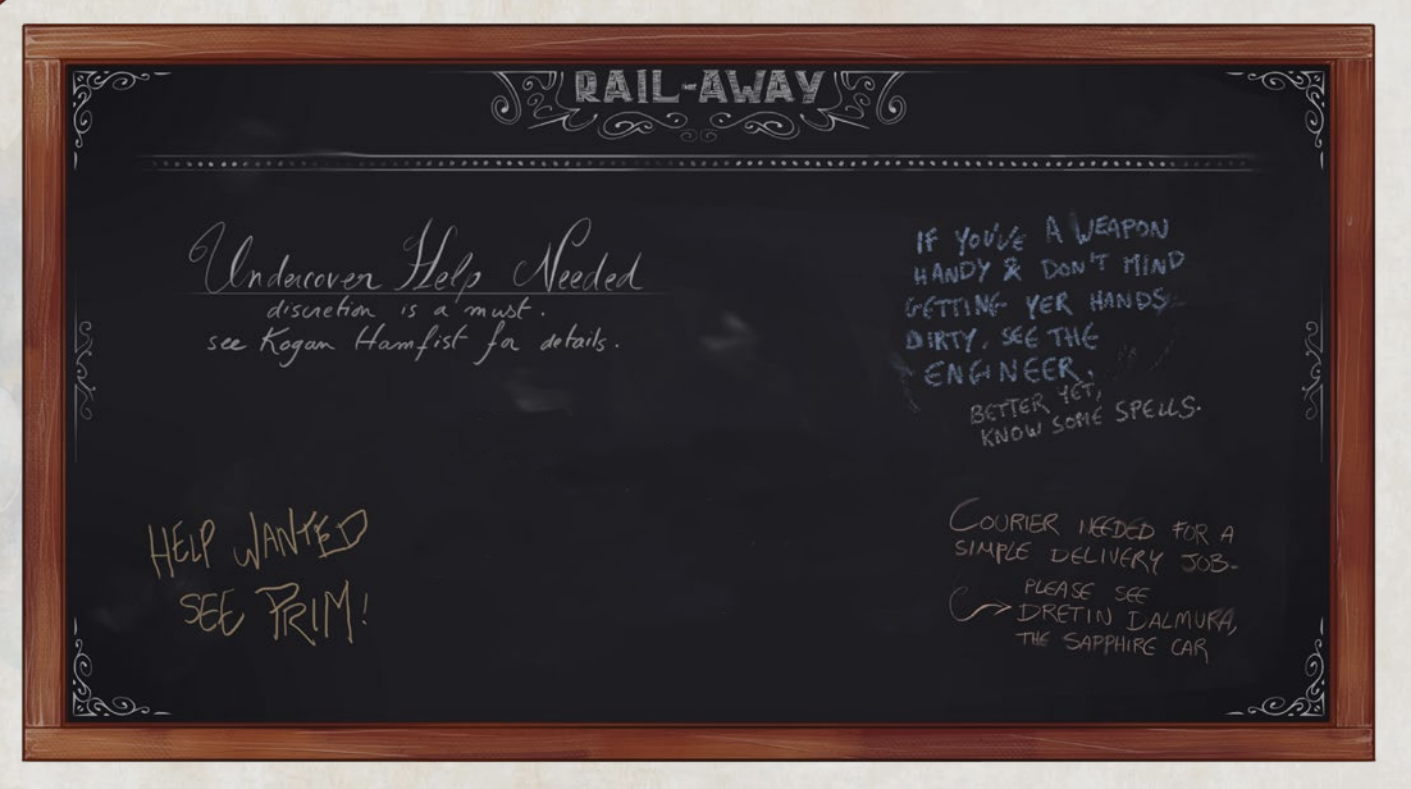 RAIL-AWAY
Undercover Help Needed
discretion is a must.
see Kogan Hamfist for details.
IF YOU'VE A WEAPON
HANDY & DON'T MIND
GETTING YER HANDS
DIRTY, SEE THE
ENGINEER.
BETTER YET,
KNOW SOME SPELLS.
HELP WANTED
SEE PRIM!
COURIER NEEDED FOR A
SIMPLE DELIVERY JOB-
PLEASE SEE
DRETIN DALMURA,
THE SAPPHIRE CAR